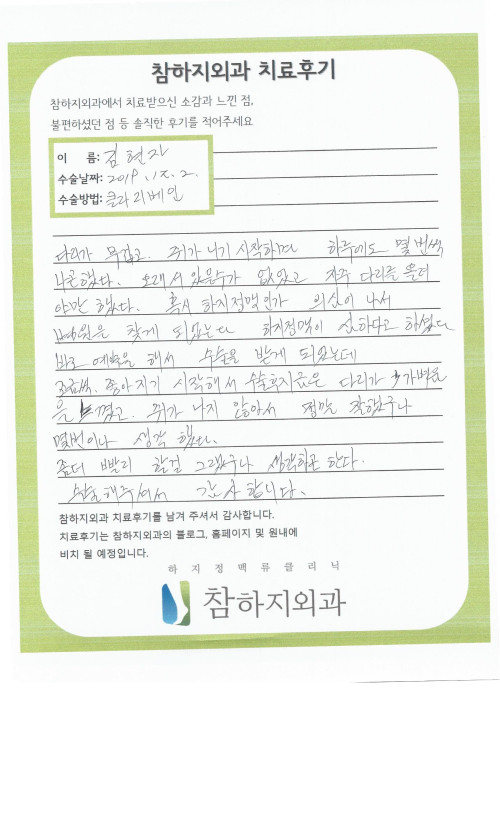 참하지외과 치료후기
참하지외과에서 치료받으신 소감과 느낀 점,
불편하셨던 점 등 솔직한 후기를 적어주세요
이 름: 김현자
수술날짜: 2019. 12. 2.
수술방법: 클라리베인
다리가 무겁고. 쥐가 나기 시작하면 하루에도 몇 번씩
나곤했다. 오래 서 있을수가 없었고 자주 다리를 올려
야만 했다. 혹시 하지정맥인가 의심이 나서
병원을 찾게 되었는데 하지정맥이 심하다고 하셨다
바로 예약을 해서 수술을 받게 되었는데
조금씩. 좋아지기 시작해서 수술후지금은 다리가 가벼움
을 느꼈고. 쥐가 나지 않아서 정말 잘했구나
몇번이나 생각 했다.
좀더 빨리 할걸 그랬구나 생각하곤 한다.
해주셔서 감사합니다.
참하지외과 치료후기를 남겨 주셔서 감사합니다.
치료후기는 참하지외과의 블로그, 홈페이지 및 원내에
비치 될 예정입니다.
하지정맥류클리닉
참하지외과